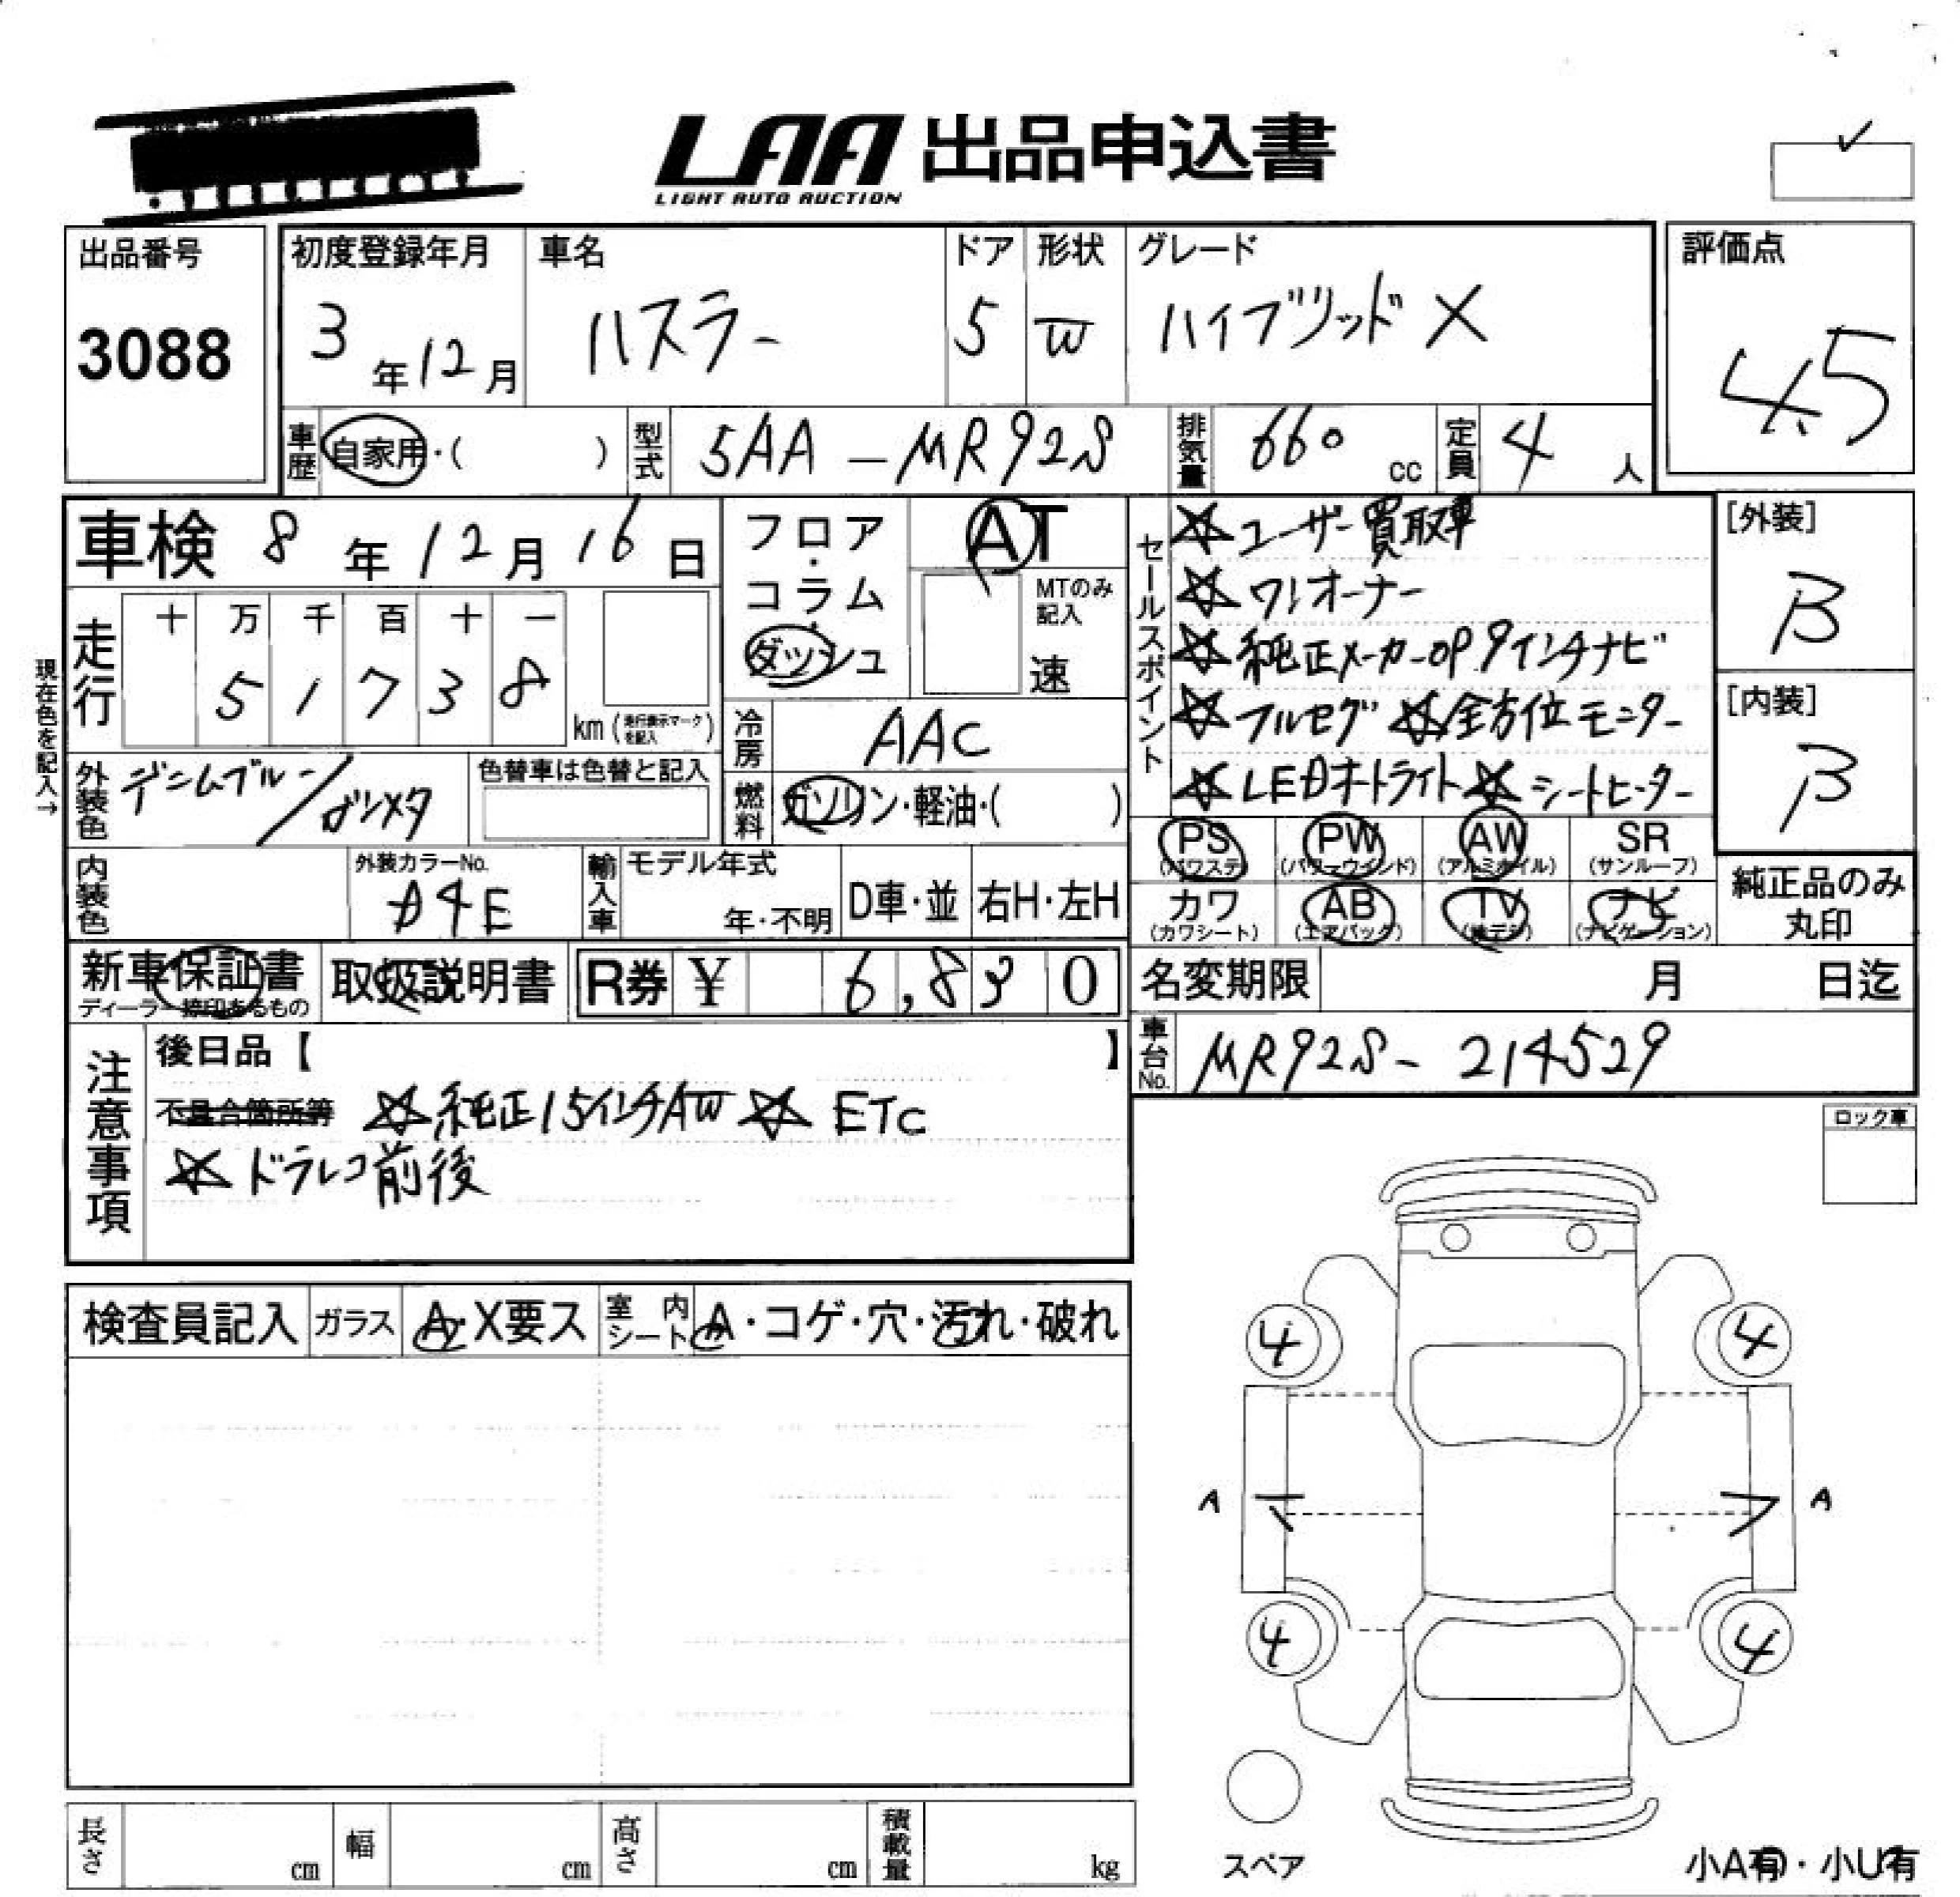 LAA 出品申込書
LIGHT AUTO AUCTION
出品番号
3088
初度登録年月
3年12月
車名
ハスラー
ドア
5
形状
W
グレード
ハイブリッドX
評価点
4.5
車歴
自家用・( )
型式
5AA-MR92S
排気量
660 cc
定員
4人
車検 8年12月16日
フロア・コラム・ダッシュ
AT
MTのみ記入
速
セールスポイント
☆ユーザー買取車
☆ワンオーナー
☆純正メーカーOP 9インチナビ
☆フルセグ ☆全方位モニター
☆LEDオートライト ☆シートヒーター
[外装]
B
[内装]
B
現在色を記入→
走行
十 万 千 百 十 一
5 1 7 3 8
km (走行表示マークを記入)
冷房
AAC
外装色
デニムブルー/ガンメタ
色替車は色替と記入
燃料
ガソリン・軽油・( )
PS (パワステ)
PW (パワーウインド)
AW (アルミホイル)
SR (サンルーフ)
カワ (カワシート)
AB (エアバック)
TV (地デジ)
ナビ (ナビゲーション)
純正品のみ丸印
内装色
外装カラーNo.
D4E
輸入車
モデル年式
年・不明
D車・並
右H・左H
新車保証書
ディーラー捺印あるもの
取扱説明書
R券 ¥ 6,830
名変期限 月 日迄
車台No.
MR92S-214529
注意事項
後日品【 】
不具合箇所等 ☆純正15インチAW ☆ETC
☆ドラレコ前後
ロック車
検査員記入
ガラス
A・X要ス
室内シート
A・コゲ・穴・汚れ・破れ
4 4
A A
4 4
スペア
長さ cm
幅 cm
高さ cm
積載量 kg
小A有・小U有